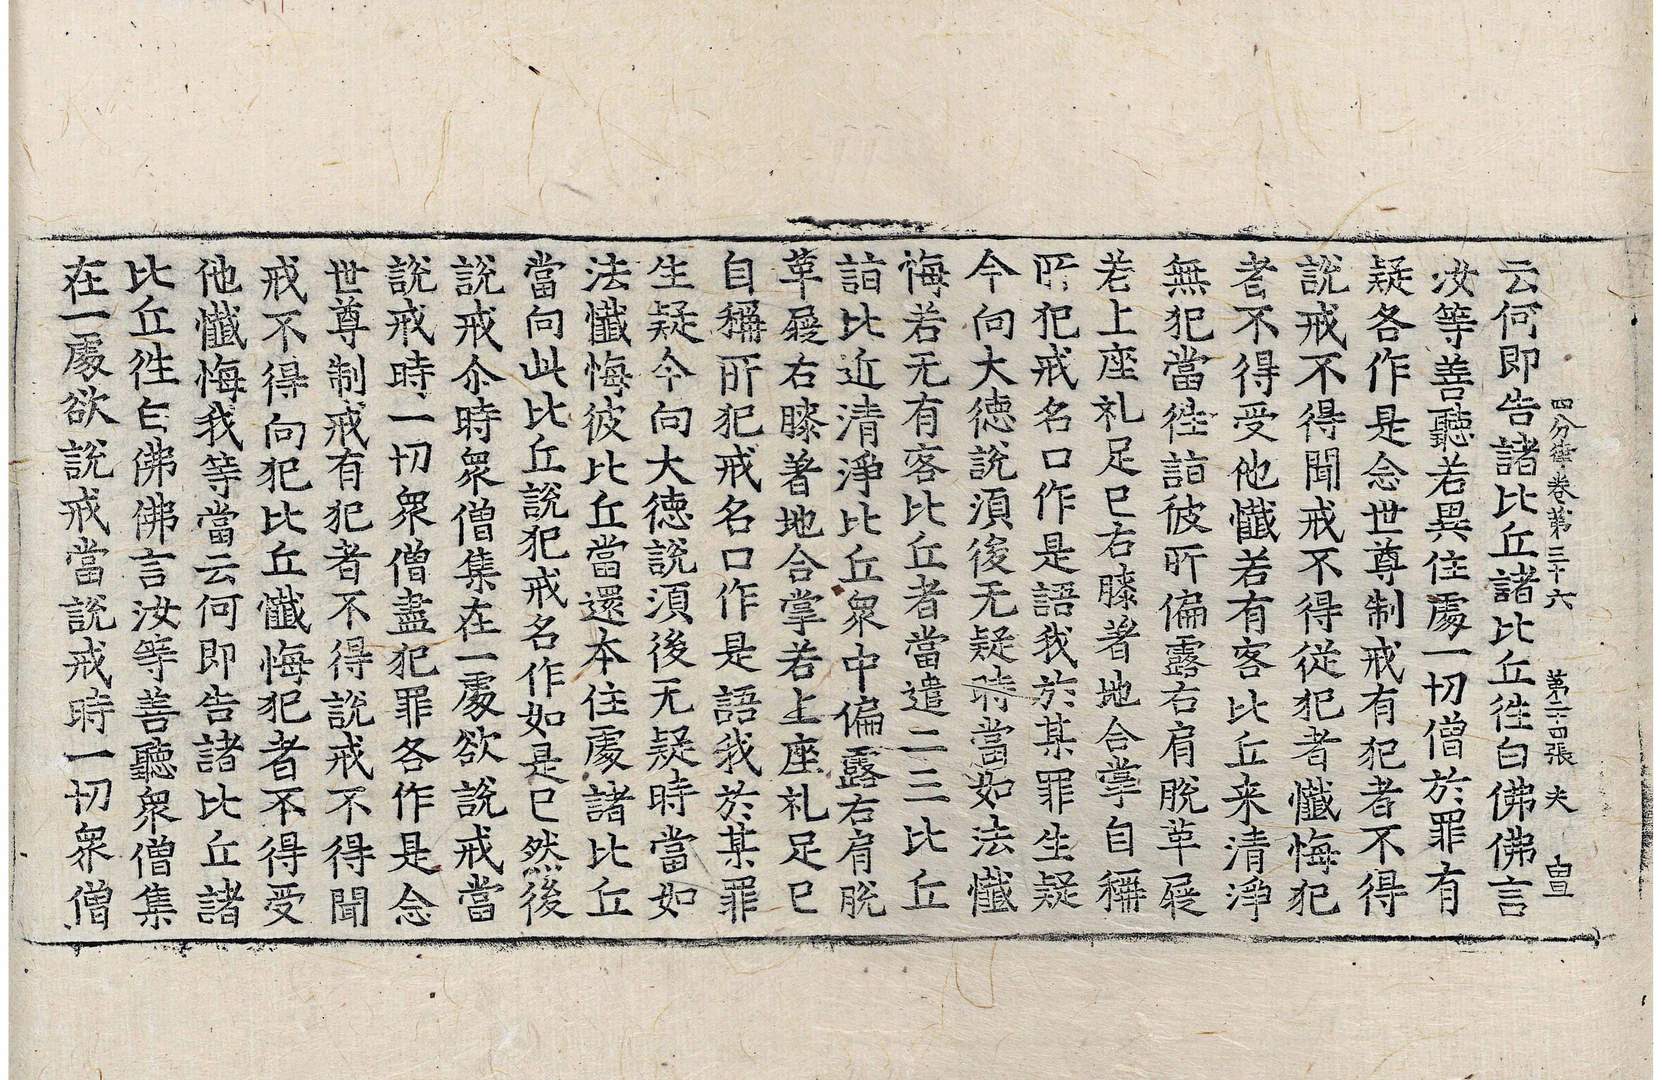 四分律卷第三十六 第二十四張 夫
云何即告諸比丘諸比丘徃白佛佛言
汝等善聽若異住處一切僧於罪有
疑各作是念世尊制戒有犯者不得
說戒不得聞戒不得從犯者懺悔犯
者不得受他懺若有客比丘来清淨
無犯當徃詣彼所偏露右肩脫革屣
若上座礼足已右膝著地合掌自稱
所犯戒名口作是語我於某罪生疑
今向大德說湏後无疑時當如法懺
悔若无有客比丘者當遣二三比丘
詣比近清淨比丘衆中偏露右肩脫
革屣右膝著地合掌若上座礼足已
自稱所犯戒名口作是語我於某罪
生疑今向大德說湏後无疑時當如
法懺悔彼比丘當還本住處諸比丘
當向此比丘說犯戒名作如是已然後
說戒尒時衆僧集在一處欲說戒當
說戒時一切衆僧盡犯罪各作是念
世尊制戒有犯者不得說戒不得聞
戒不得向犯比丘懺悔犯者不得受
他懺悔我等當云何即告諸比丘諸
比丘徃白佛佛言汝等善聽衆僧集
在一處欲說戒當說戒時一切衆僧